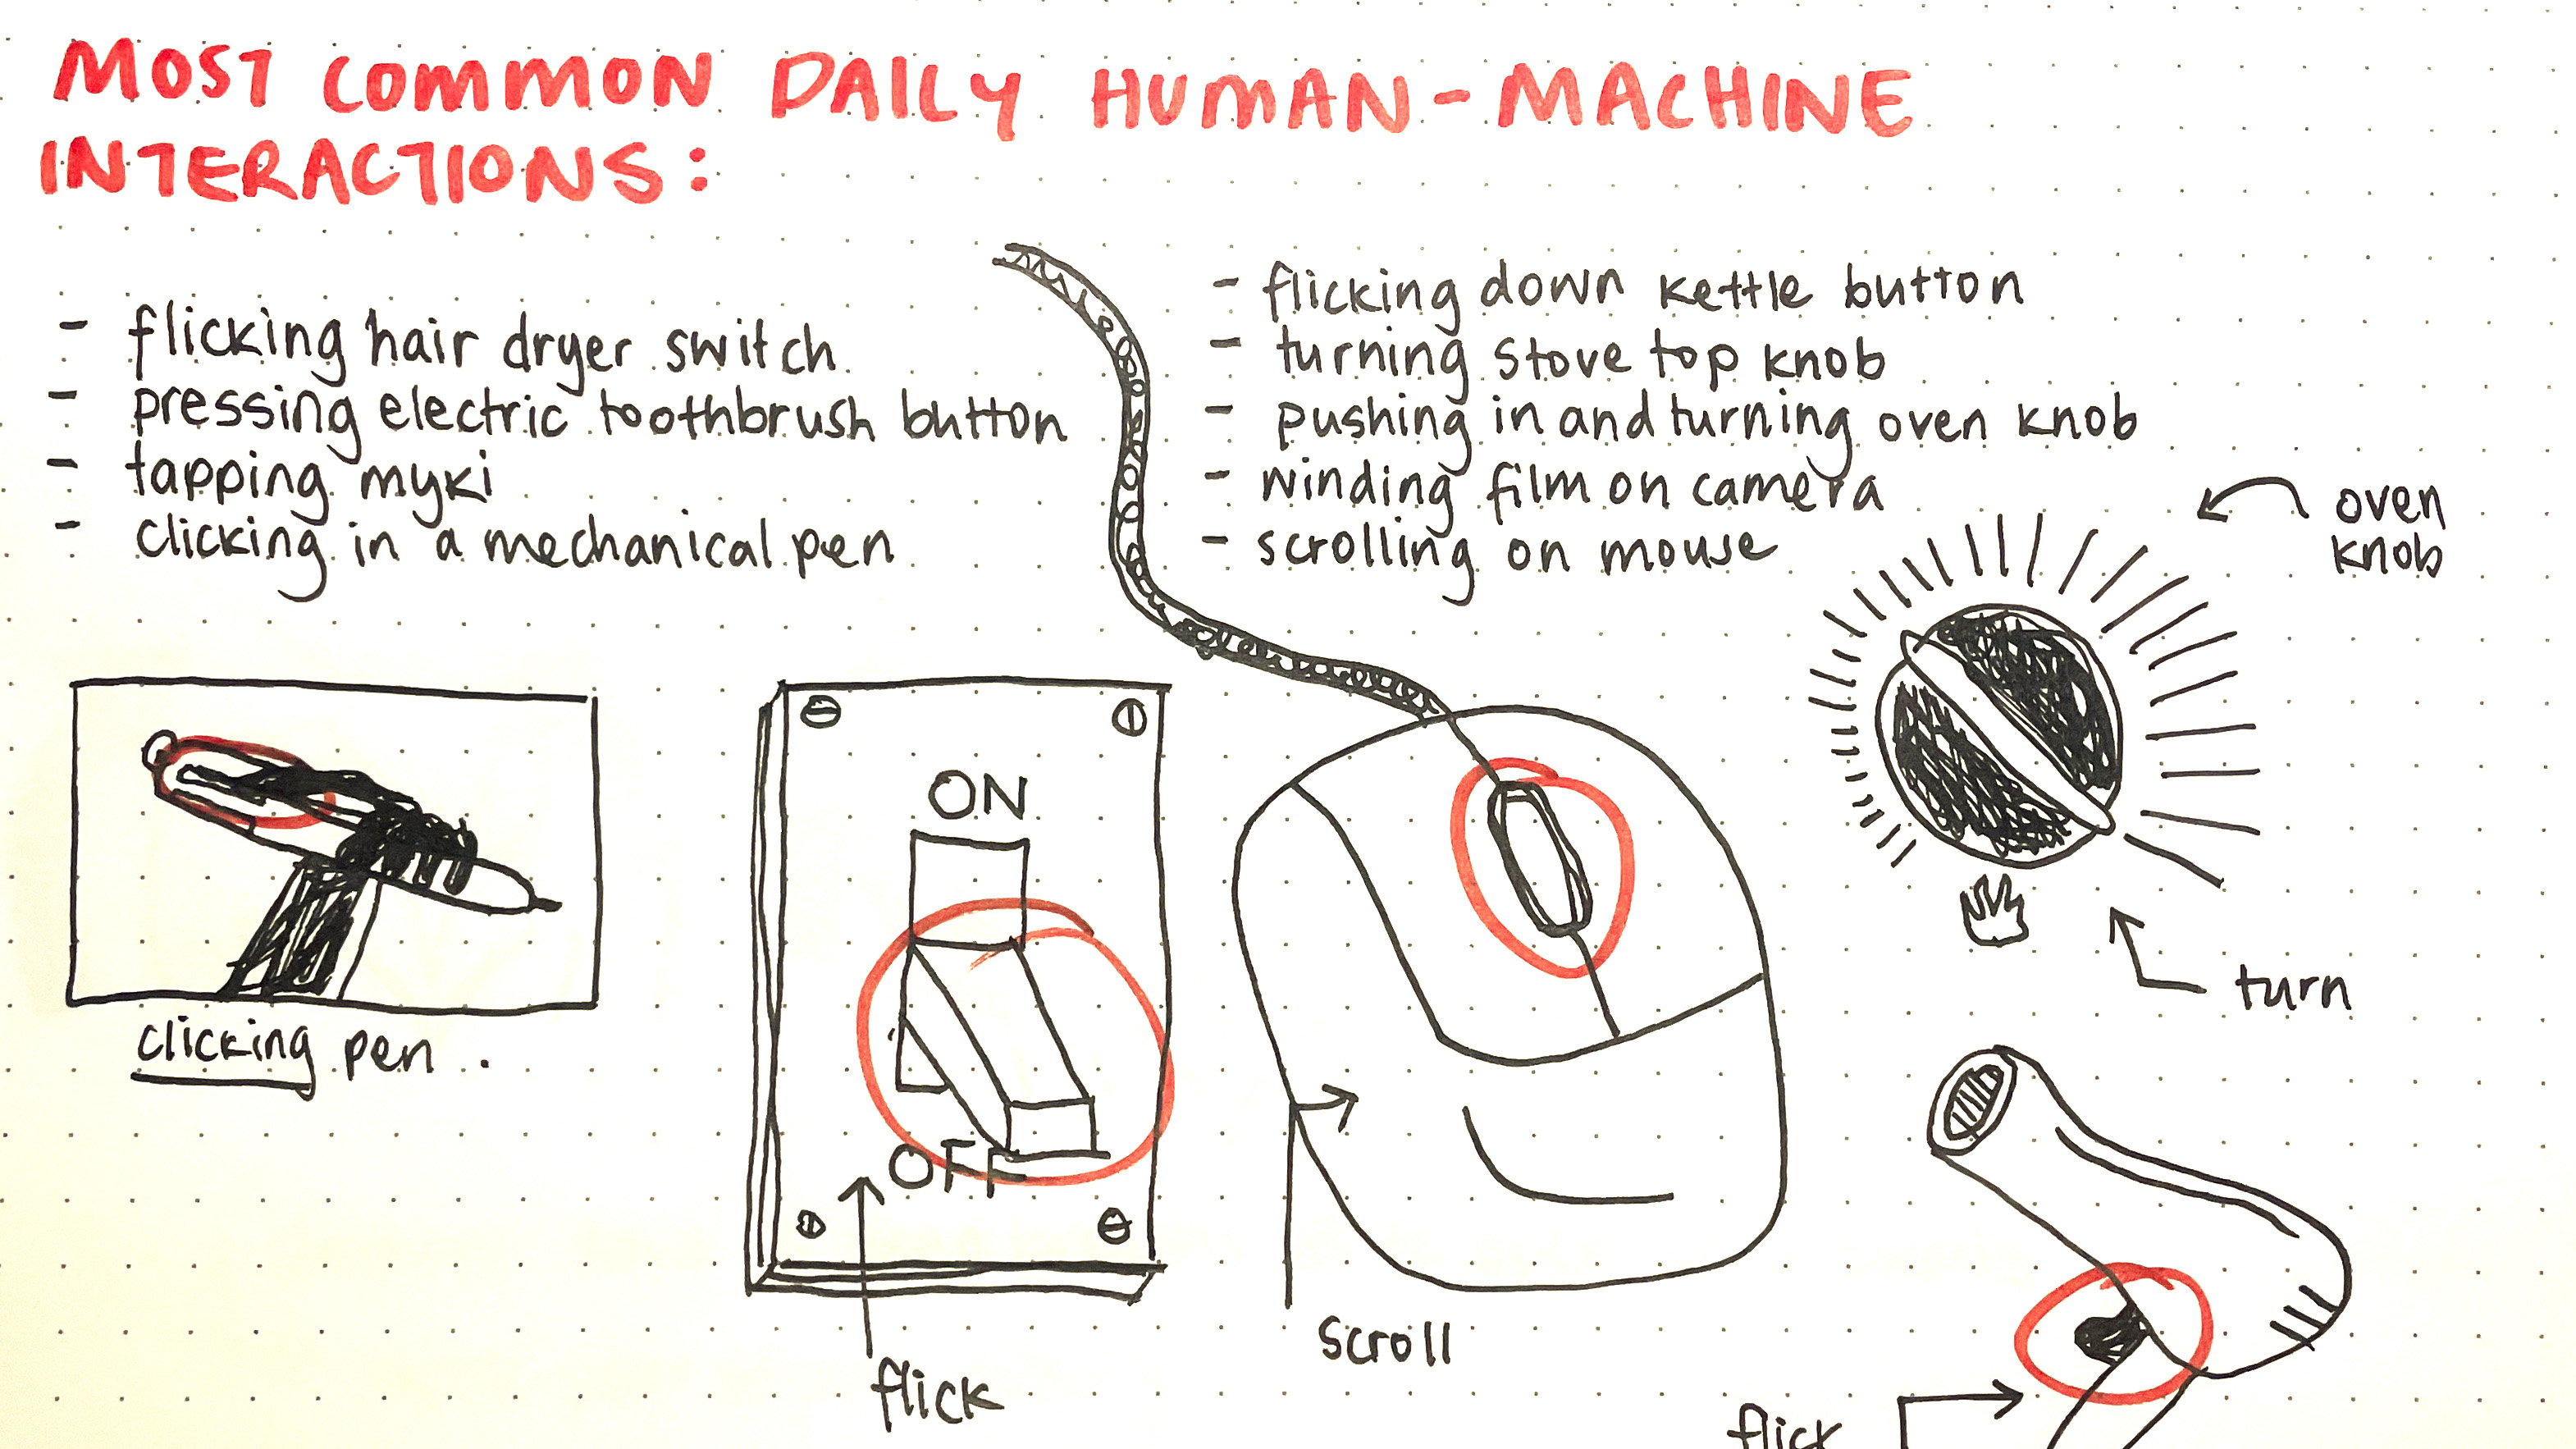 MOST COMMON DAILY HUMAN-MACHINE
INTERACTIONS:
- flicking hair dryer switch
- pressing electric toothbrush button
- tapping myki
- clicking in a mechanical pen
- flicking down kettle button
- turning stove top knob
- pushing in and turning oven knob
- winding film on camera
- scrolling on mouse
oven
knob
clicking pen.
ON
OFF
flick
scroll
turn
flick